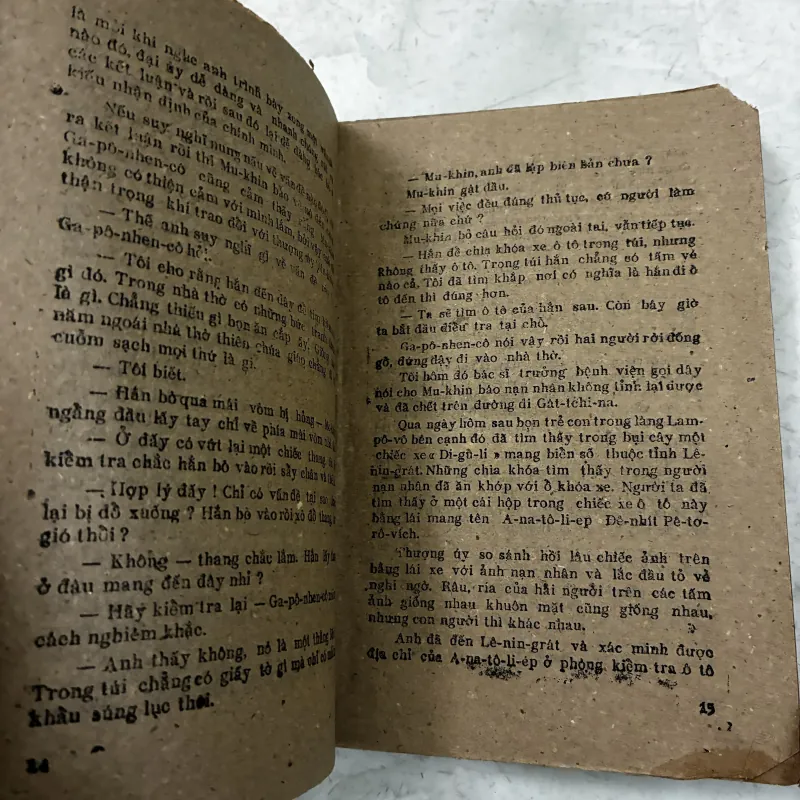 là mỗi khi nghe anh trình bày xong một
nào đó, đại úy dễ dàng và nhanh chóng
các kết luận và rồi sau đó lại dễ dàng
kiểu nhận định của chính mình.
Nếu suy nghĩ nung nấu về vấn đề
ra kết luận rồi thì Mu-khin bảo
Ga-pô-nhen-cô cũng cảm thấy
không có thiện cảm với mình lắm, bởi vậy
thận trọng khi trao đổi với thượng úy
— Thế anh suy nghĩ gì về vấn đề
Ga-pô-nhen-cô hỏi.
— Tôi cho rằng hắn đến đây để tìm
gì đó. Trong nhà thờ có những bức tranh
là gì. Chẳng thiếu gì bọn ăn cắp ấy.
năm ngoái nhà thờ thiên chúa giáo
cuỗm sạch mọi thứ là gì.
— Tôi biết.
— Hắn bò qua mái vòm bị hỏng —
ngẩng đầu lấy tay chỉ về phía mái vòm
— Ở đấy có vứt lại một chiếc thang
kiểm tra chắc hắn bò vào rồi sẩy chân và
— Hợp lý đấy ! Chỉ có vấn đề tại sao
lại bị đổ xuống ? Hắn bò vào rồi xô đổ thang
gió thổi ?
— Không — thang chắc lắm. Hắn lấy
ở đâu mang đến đây nhỉ ?
— Hãy kiểm tra lại — Ga-pô-nhen-cô nói
cách nghiêm khắc.
— Anh thấy không, nó là một thằng
Trong túi chẳng có giấy tờ gì mà chỉ có
khẩu súng lục thôi.
14
— Mu-khin, anh đã lập biên bản chưa ?
Mu-khin gật đầu.
— Mọi việc đều đúng thủ tục, có người làm
chứng nữa chứ ?
Mu-khin bỏ câu hỏi đó ngoài tai, vẫn tiếp tục.
— Hắn để chìa khóa xe ô tô trong túi, nhưng
không thấy ô tô. Trong túi hắn chẳng có tấm vé
nào cả. Tôi đã tìm khắp nơi có nghĩa là hắn đi ô
tô đến thì đúng hơn.
— Ta sẽ tìm ô tô của hắn sau. Còn bây giờ
ta bắt đầu điều tra tại chỗ.
Ga-pô-nhen-cô nói vậy rồi hai người rời đống
gỗ, đứng dậy đi vào nhà thờ.
Tối hôm đó bác sĩ trưởng bệnh viện gọi dây
nói cho Mu-khin báo nạn nhân không tỉnh lại được
và đã chết trên đường đi Gát-tchi-na.
Qua ngày hôm sau bọn trẻ con trong làng Lam-
pô-vô bên cạnh đó đã tìm thấy trong bụi cây một
chiếc xe « Di-gu-li » mang biển số thuộc tỉnh Lê-
nin-grát. Những chìa khóa tìm thấy trong người
nạn nhân đã ăn khớp với ổ khóa xe. Người ta đã
tìm thấy ở một cái hộp trong chiếc xe ô tô này
bằng lái mang tên A-na-tô-li-ep Đê-nhít Pê-tơ-
rô-vích.
Thượng úy so sánh hồi lâu chiếc ảnh trên
bằng lái xe với ảnh nạn nhân và lắc đầu tỏ vẻ
nghi ngờ. Râu, ria của hai người trên các tấm
ảnh giống nhau khuôn mặt cũng giống nhau,
nhưng con người thì khác nhau.
Anh đã đến Lê-nin-grát và xác minh được
địa chỉ của A-na-tô-li-ép ở phòng kiểm tra ô tô
15